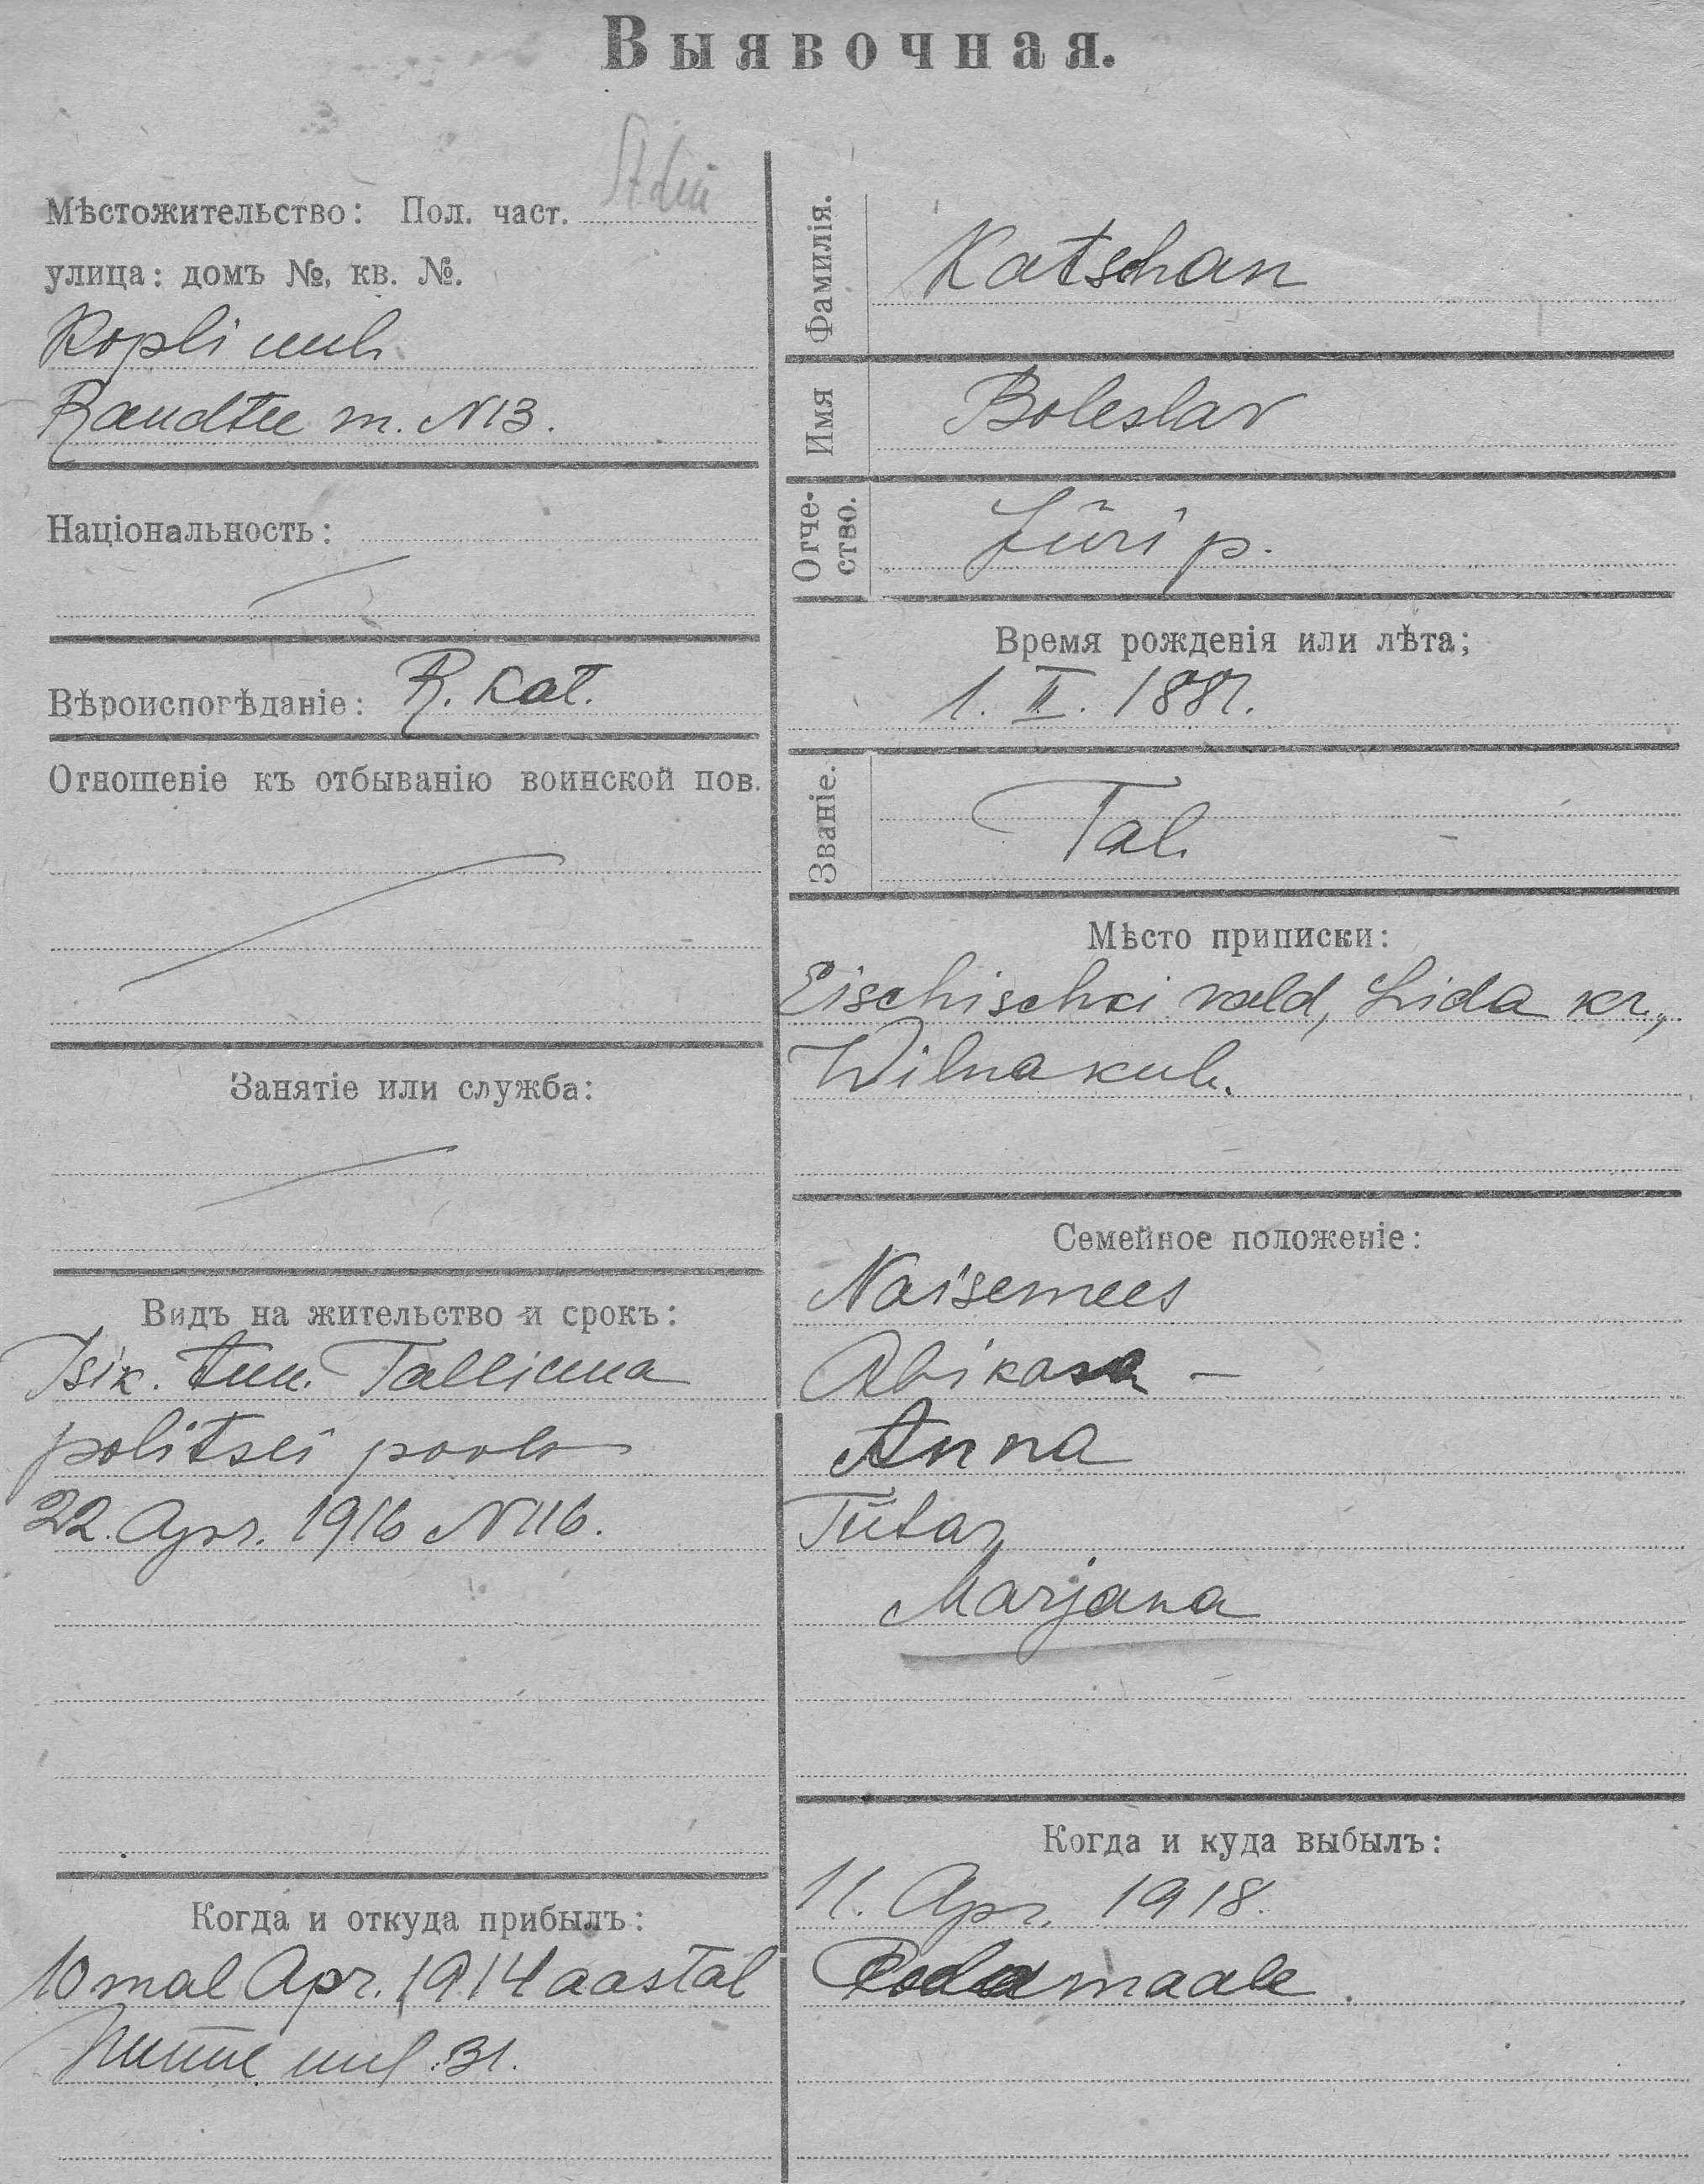 Выявочная.
Мѣстожительство: Пол. част.
улица: домъ №, кв. №.
Kopli uul.
Raudtee m. N13.
Національность:
Вѣроиспогѣданіе: R. kat.
Отношевіе къ отбыванію воинской пов.
Занятіе или служба:
Видъ на жительство и срокъ:
Isik. tun. Tallinna
politsei poolt
22. Apr. 1916 N116.
Когда и откуда прибылъ:
10mal Apr. 1914 aastal
31.
Фамилія.
Katschan
Имя
Boleslav
Отче-
ство.
Jüri p.
Время рожденія или лѣта;
1. II. 1887.
Званіе.
Tal.
Мѣсто приписки:
Eischischki vald, Lida kr.,
Wilna kub.
Семейное положеніе:
Naisemees
Abikasa –
Anna
Tütar
Marjana
Когда и куда выбылъ:
11. Apr. 1918.